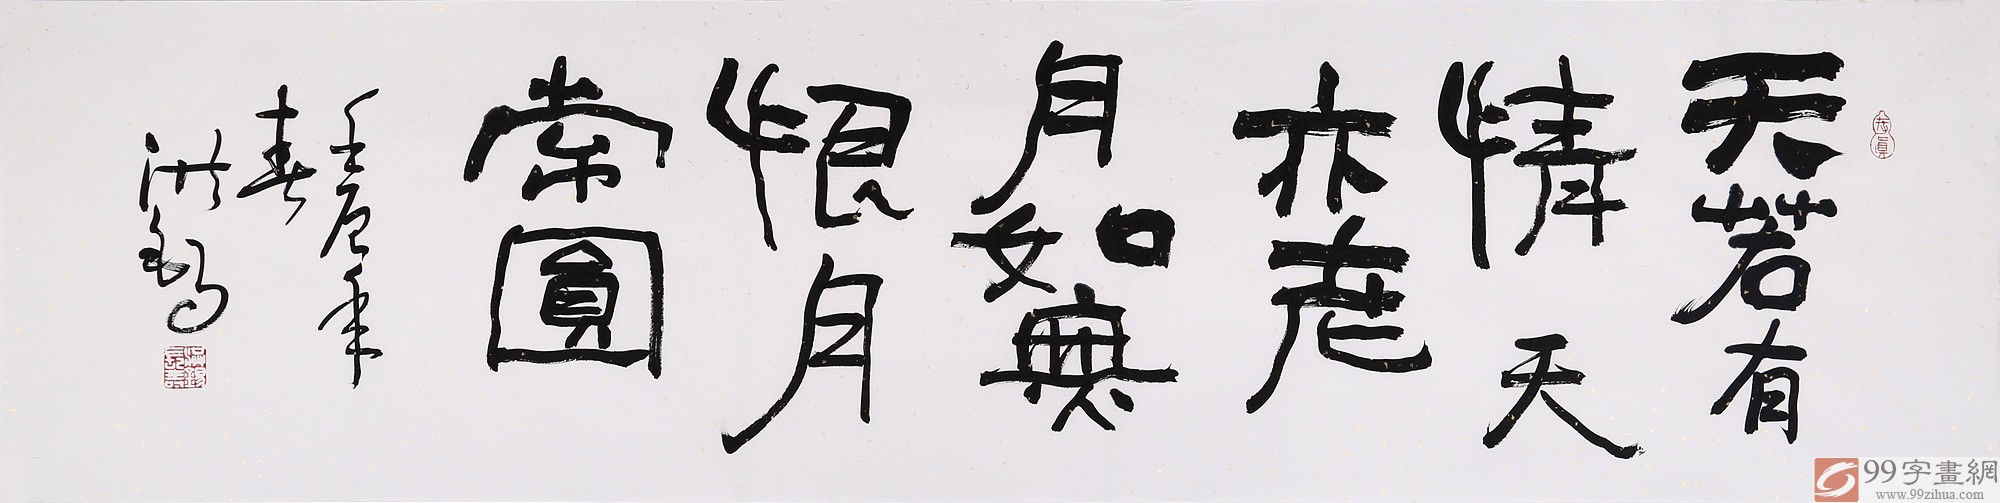 天若有
情天
亦老
月如無
恨月
常圓
壬辰年
春
洪
99字畫網
www.99zihua.com